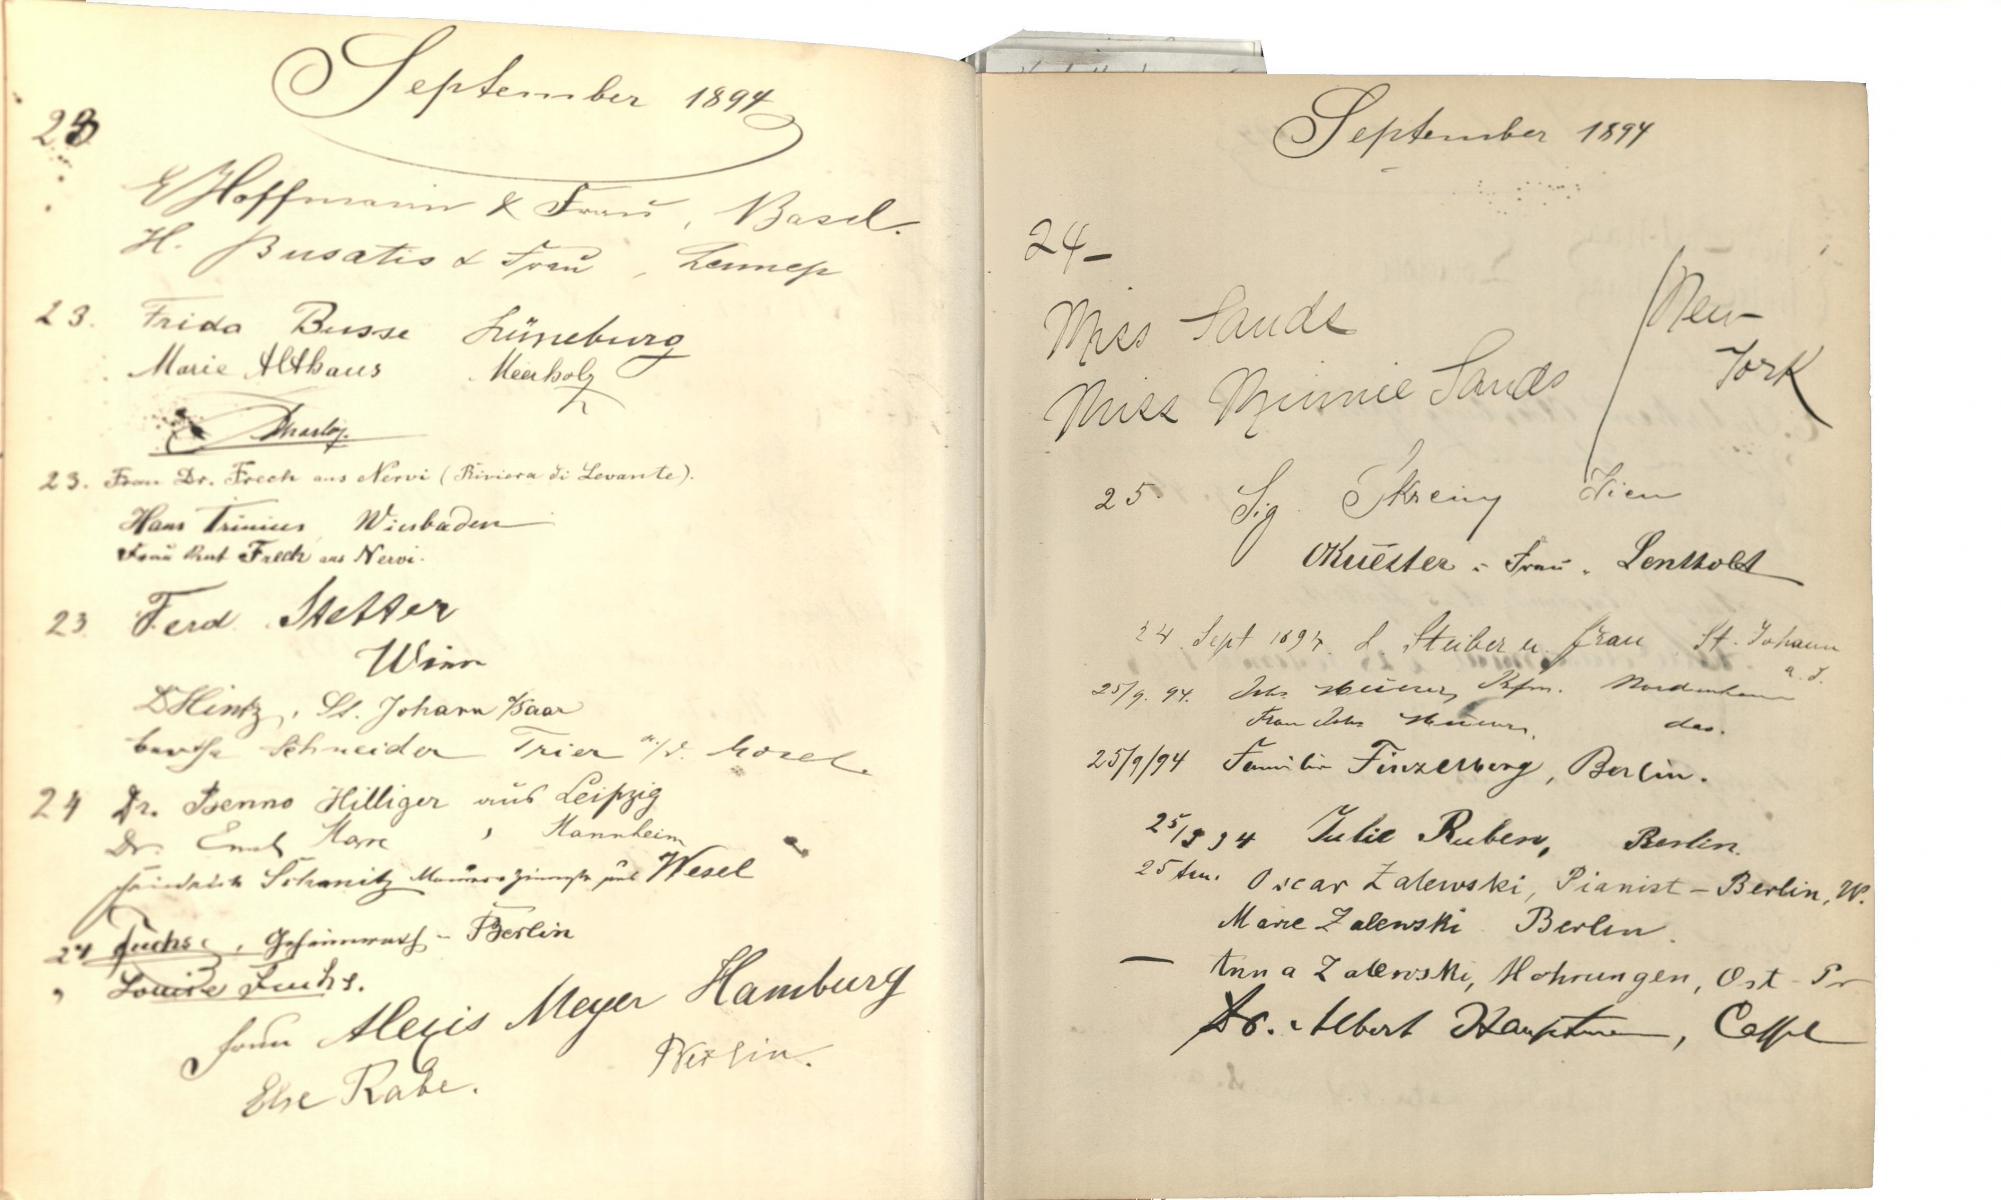 September 1894
23
E Hoffmann & Frau, Basel.
H. Busatis & Frau, Lennep
23. Frida Busse Lüneburg
Marie Althaus Meerholz
23. Frau Dr. Frech aus Nervi (Riviera di Levante).
Hans Trinius, Wiesbaden
Frau Frech aus Nervi.
23 Ferd. Stetter
Wien
Hintz, St. Johann a/Saar
Schneider Trier a/d. Mosel.
24 Dr. Benno Hilliger aus Leipzig
Dr. Marx, Mannheim
Friedrich Schmitz Wesel
24 Fuchs, Geheimrath - Berlin
" Louise Fuchs.
Frau Alexis Meyer Hamburg
Else Rabe. Berlin.
September 1894
24-
Miss Sands
New
Miss Minnie Sands
York
25 Sig. Wien
Kuester u. Frau.
24. Sept 1894. L. Stuber u. Frau St. Johann
a. S.
25/9. 94. Kfm. Nordenham
Frau das.
25/9/94 Familie Finzelberg, Berlin.
25/9 94 Julie Ruben, Berlin.
25 Oscar Zalewski, Pianist - Berlin, W.
Marie Zalewski Berlin.
— Anna Zalewski, Mohrungen, Ost-Pr
Dr. Albert Hauptmann, Cassel